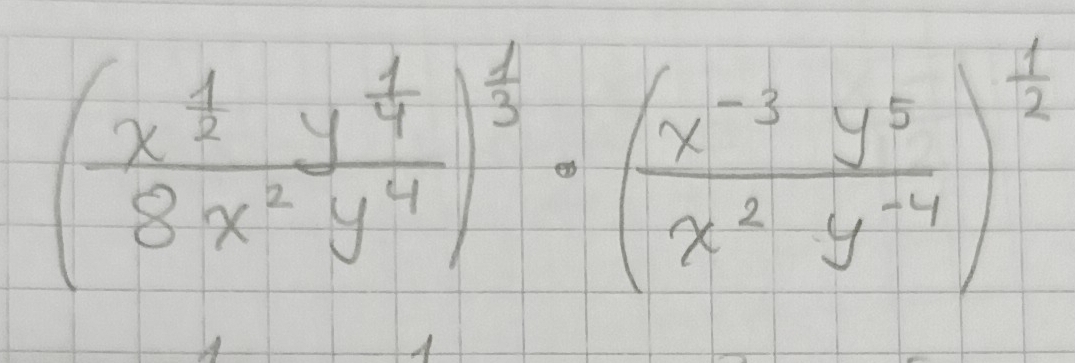 (x^{1/2} y^{1/4} / 8x^2 y^4)^{1/3} · (x^{-3} y^5 / x^2 y^{-4})^{1/2}